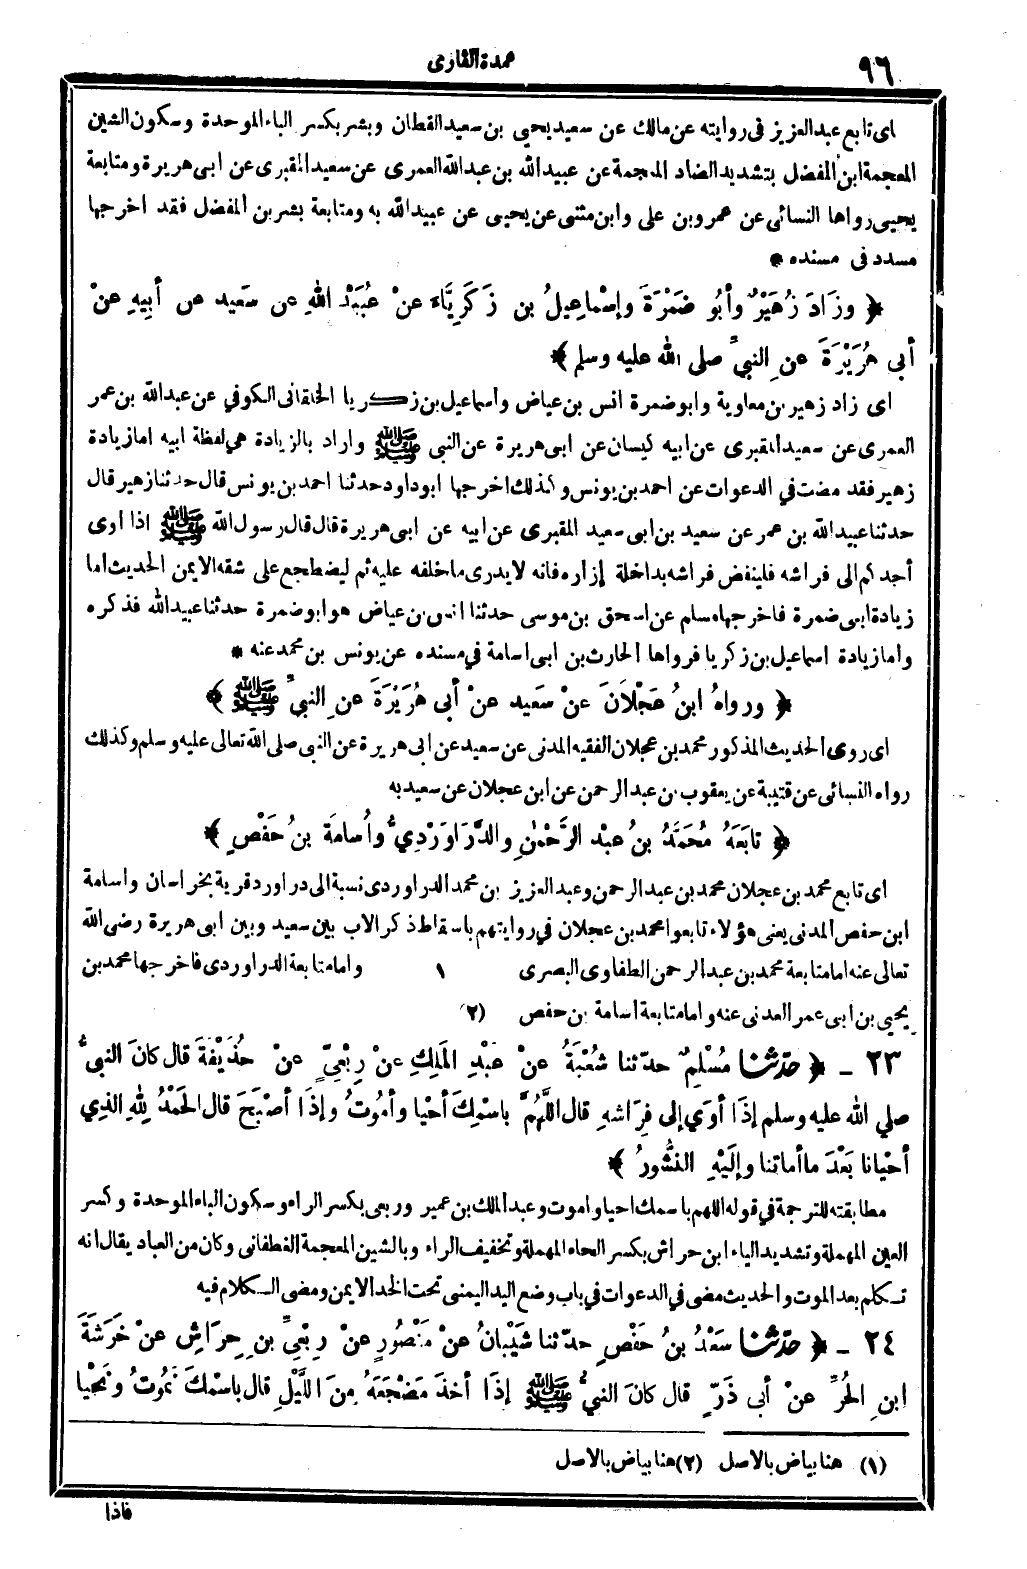 ٩٦
عمدة القارى
اى تابع عبد العزيز فى روايته عن مالك عن سعيد يحيى بن سعيد القطان وبشر بكسر الباء الموحدة وسكون الشين
المعجمة ابن المفضل بتشديد الضاد المعجمة عن عبيد الله بن عبد الله العمرى عن سعيد المقبرى عن ابى هريرة ومتابعة
يحيى رواها النسائى عن عمرو بن على وابن مثنى عن يحيى عن عبيد الله به ومتابعة بشر بن المفضل فقد اخرجها
مسدد فى مسنده *
﴿ وزَادَ زُهَيْرٌ وأبُو ضَمْرَةَ وإسْماعِيلُ بن زَكَرِيَّاءَ عنْ عُبَيْدِ اللهِ عن سَعِيد عن أبِيهِ عنْ
أبى هُرَيْرَةَ عنِ النبيِّ صلى الله عليه وسلم ﴾
اى زاد زهير بن معاوية وابو ضمرة انس بن عياض واسماعيل بن زكريا الخلقانى الكوفي عن عبد الله بن عمر
العمرى عن سعيد المقبرى عن ابيه كيسان عن ابى هريرة عن النبى ﷺ واراد بالزيادة هي لفظة ابيه اما زيادة
زهير فقد مضت في الدعوات عن احمد بن يونس وكذلك اخرجها ابو داود حدثنا احمد بن يونس قال حدثنا زهير قال
حدثنا عبيد الله بن عمر عن سعيد بن ابى سعيد المقبرى عن ابيه عن ابى هريرة قال قال رسول الله ﷺ اذا اوى
أحدكم الى فراشه فلينفض فراشه بداخلة إزاره فانه لا يدرى ما خلفه عليه ثم ليضطجع على شقه الايمن الحديث اما
زيادة ابى ضمرة فاخرجها مسلم عن اسحق بن موسى حدثنا انس بن عياض هو ابو ضمرة حدثنا عبيد الله فذكره
واما زيادة اسماعيل بن زكريا فرواها الحارث بن ابى اسامة في مسنده عن يونس بن محمد عنه *
﴿ ورواهُ ابنُ عَجْلاَنَ عنْ سَعِيد عنْ أبى هُرَيْرَةَ عنِ النبيِّ ﷺ ﴾
اى روى الحديث المذكور محمد بن عجلان الفقيه المدنى عن سعيد عن ابى هريرة عن النبى صلى الله تعالى عليه وسلم وكذلك
رواه النسائى عن قتيبة عن يعقوب بن عبد الرحمن عن ابن عجلان عن سعيد به
﴿ تابَعَهُ مُحَمَّدُ بنُ عبْد الرَّحْمٰنِ والدَّرَاوَرْدِيُّ وأُسامَةُ بنُ حَفْصٍ ﴾
اى تابع محمد بن عجلان محمد بن عبد الرحمن وعبد العزيز بن محمد الدراوردى نسبة الى دراورد قرية بخراسان واسامة
ابن حفص المدنى يعنى هؤلاء تابعوا محمد بن عجلان في روايتهم باسقاط ذكر الاب بين سعيد وبين ابى هريرة رضى الله
تعالى عنه اما متابعة محمد بن عبد الرحمن الطفاوى البصرى ١ واما متابعة الدراوردى فاخرجها محمد بن
يحيى بن ابى عمر العدنى عنه واما متابعة اسامة بن حفص (٢)
٢٣ - ﴿ حَدّثَنا مُسْلِمٌ حدّثنا شُعْبَةُ عنْ عَبْدِ المَلِكِ عنْ رِبْعِيٍّ عنْ حُذَيْفَةَ قال كانَ النبيُّ
صلي الله عليه وسلم إذَا أوَى إلى فِرَاشهِ قال اللَّهُمَّ باسْمِكَ أحْيا وأمُوتُ وإذَا أصْبَحَ قال الحَمْدُ لِلهِ الذِي
أحْيانا بَعْدَ ما أماتنا وإلَيْهِ النُّشُورُ ﴾
مطابقته للترجمة في قوله اللهم باسمك احيا واموت وعبد الملك بن عمير وربعى بكسر الراء وسكون الباء الموحدة وكسر
العين المهملة وتشديد الياء ابن حراش بكسر الحاء المهملة وتخفيف الراء وبالشين المعجمة الغطفانى وكان من العباد يقال انه
تكلم بعد الموت والحديث مضى في الدعوات في باب وضع اليد اليمنى تحت الخد الايمن ومضى الكلام فيه
٢٤ - ﴿ حَدّثَنا سَعْدُ بنُ حَفْصٍ حدّثنا شَيْبانُ عنْ مَنْصُورٍ عنْ رِبْعِيِّ بنِ حِرَاشٍ عنْ خَرَشَةَ
ابنِ الحُرِّ عنْ أبي ذَرٍّ قال كانَ النبيُّ ﷺ إذَا أخَذَ مَضْجَعَهُ مِنَ اللَّيْلِ قال باسْمِكَ نَمُوتُ ونَحْيا
(١) هنا بياض بالاصل (٢) هنا بياض بالاصل
فاذا